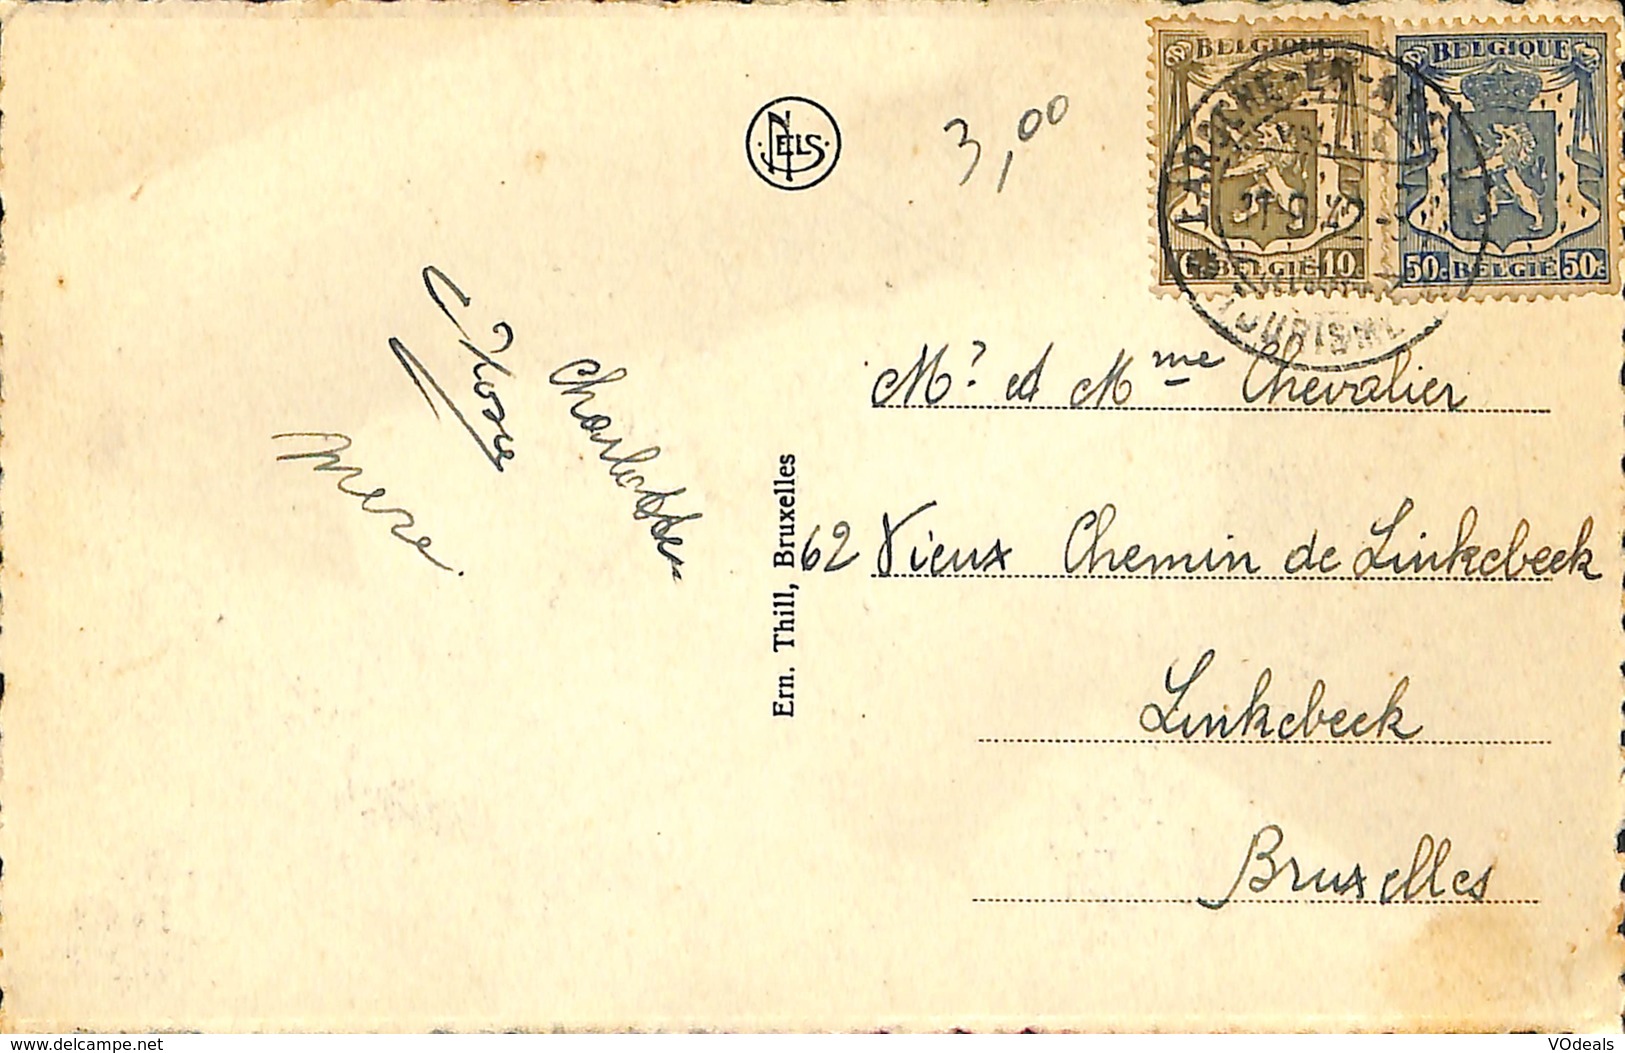 NELS
3,00
BELGIQUE
BELGIQUE
LAROCHE-EN-
10c BELGIË 10c
50c BELGIË 50c
TOURISME
Charlotte
Mr et Mme Chevalier
62 Vieux Chemin de Linkebeek
Linkebeek
Bruxelles
Ern. Thill, Bruxelles
www.delcampe.net
VOdeals